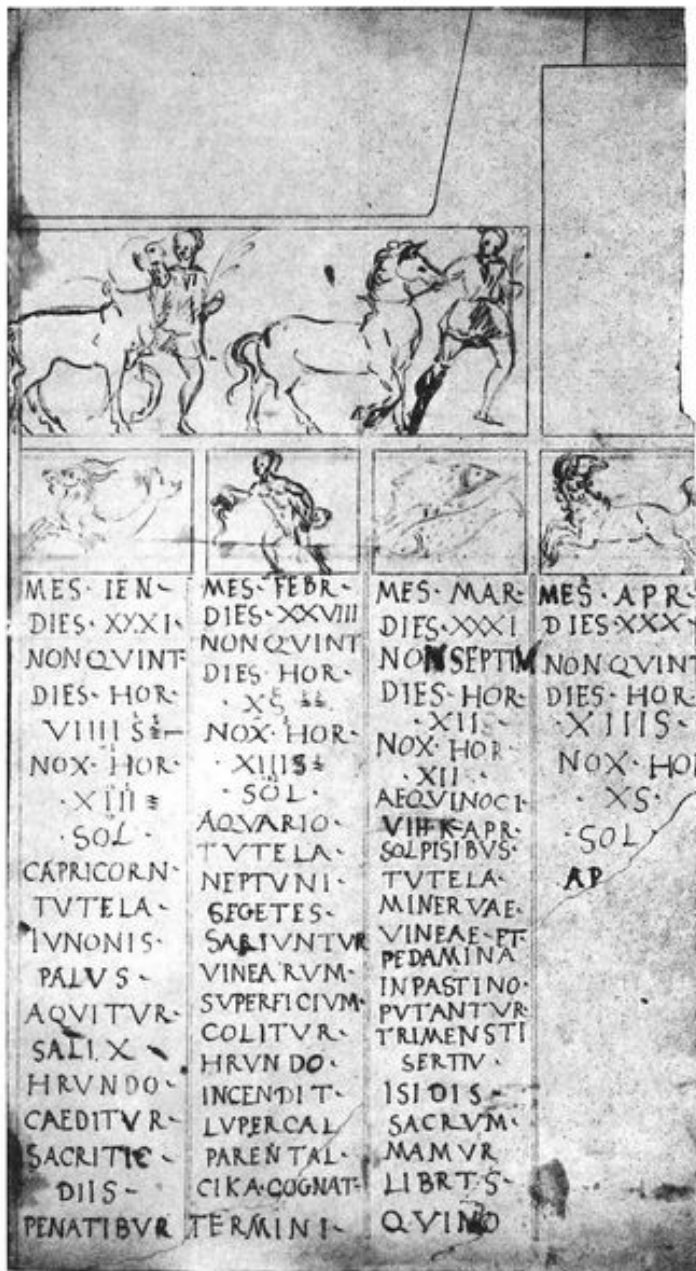 MES· IEN·
DIES· XXXI·
NONQVINT·
DIES· HOR·
VIIIIS
NOX· HOR·
·XIII
·SOL·
CAPRICORN·
TVTELA·
IVNONIS·
PALVS·
AQVITVR·
SALIX
HRVNDO·
CAEDITVR·
SACRITIC·
DIIS·
PENATIBVR
MES· FEBR·
DIES·XXVIII
NONQVINT
DIES· HOR·
·XS
NOX· HOR·
·XIIIS
·SOL·
AQVARIO·
TVTELA·
NEPTVNI·
SEGETES·
SARIVNTVR
VINEARVM·
SVPERFICIVM·
COLITVR·
HRVNDO·
INCENDIT·
LVPERCAL
PARENTAL·
CIKA·COGNAT·
TERMINI·
MES· MAR·
DIES·XXXI
NONSEPTIM
DIES· HOR·
·XII·
NOX· HOR·
·XII·
AEQVINOCI·
VIII K APR·
SOLPISIBVS·
TVTELA·
MINERVAE·
VINEAE·ET·
PEDAMINA
INPASTINO·
PVTANTVR·
TRIMENSTI
SERTIV·
ISIDIS·
SACRVM·
MAMVR
LIBRTS·
QVINO
MES· APR·
DIES·XXX·
NONQVINT
DIES· HOR
·XIIIS·
NOX· HO
·XS·
·SOL·
AP